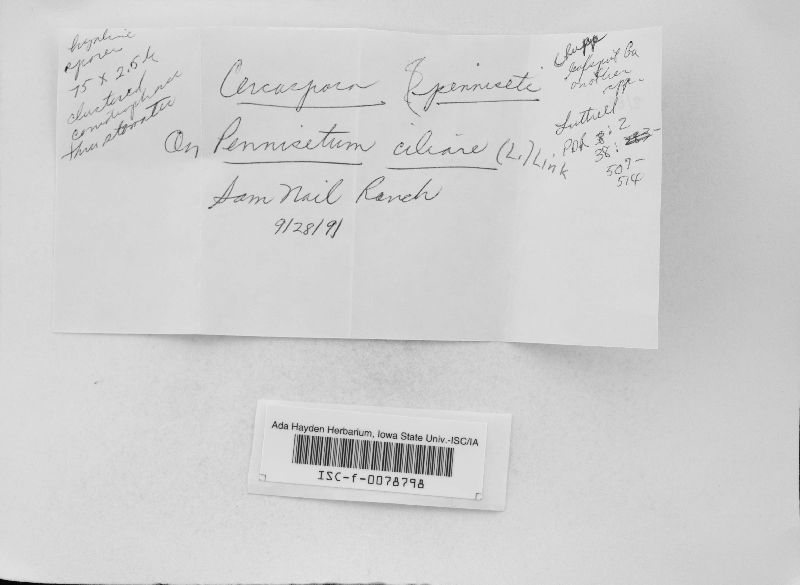 hyaline
spores
75 x 2.5 µ
clustered
conidiophores
thru stomates
Cercospora (penniseti
On Pennisetum ciliare (L.) Link
Sam Nail Ranch
9/28/91
Chupp
leafspot Ga
another
spp.
Luttrell
PDR 8: 2
38:
509-
514
Ada Hayden Herbarium, Iowa State Univ.-ISC/IA
ISC-f-0078798